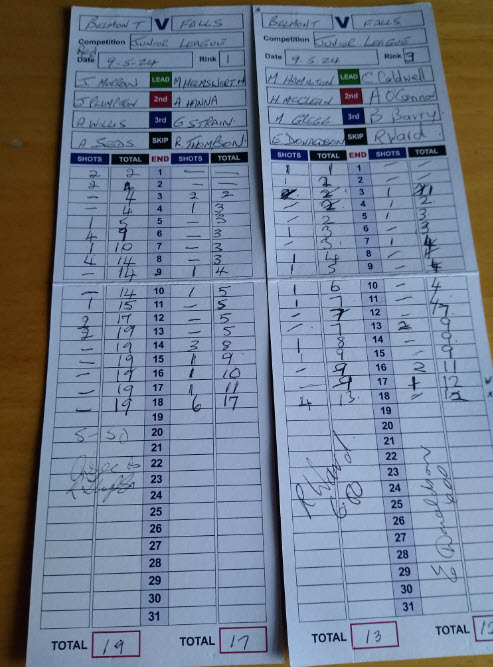 BELMONT V FALLS
Competition JUNIOR LEAGUE
Wed
Date 9-5-24 Rink 1
J. MORROW LEAD M HEMSWORTH
J. THOMPSON 2nd A HANNA
A. WILLIS 3rd G STRAIN
SKIP R. THOMPSON
SHOTS TOTAL END SHOTS TOTAL
2 2 1 — —
2 4 2 — —
— 4 3 2 2
— 4 4 1 3
1 5 5 — 3
4 9 6 — 3
1 10 7 — 3
4 14 8 — 3
— 14 9 1 4
— 14 10 1 5
1 15 11 — 5
2 17 12 — 5
2 19 13 — 5
— 19 14 3 8
— 19 15 1 9
— 19 16 1 10
— 19 17 1 11
— 19 18 6 17
19
20
21
22
23
24
25
26
27
28
29
30
31
TOTAL 19 TOTAL 17
BELMONT V FALLS
Competition JUNIOR LEAGUE
Date 9.5.24 Rink 3
M. HAMILTON LEAD C Caldwell
H. MCCLEAN 2nd A O'Connor
M. GREGG 3rd B Barry
E. DONALDSON SKIP R. Vaid
SHOTS TOTAL END SHOTS TOTAL
1 1 1 — —
1 2 2 — —
2 3 1 1
2 4 1 2
— 2 5 1 3
1 3 6 — 3
— 3 7 1 4
1 4 8 — 4
1 5 9 — 4
1 6 10 — 4
1 7 11 — 4
— 7 12 7
— 7 13 2 9
1 8 14 — 9
1 9 15 — 9
— 9 16 2 11
— 9 17 1 12
4 13 18 — 12
19
20
21
22
23
24
25
26
27
28
29
30
31
E Donaldson
TOTAL 13 TOTAL 12